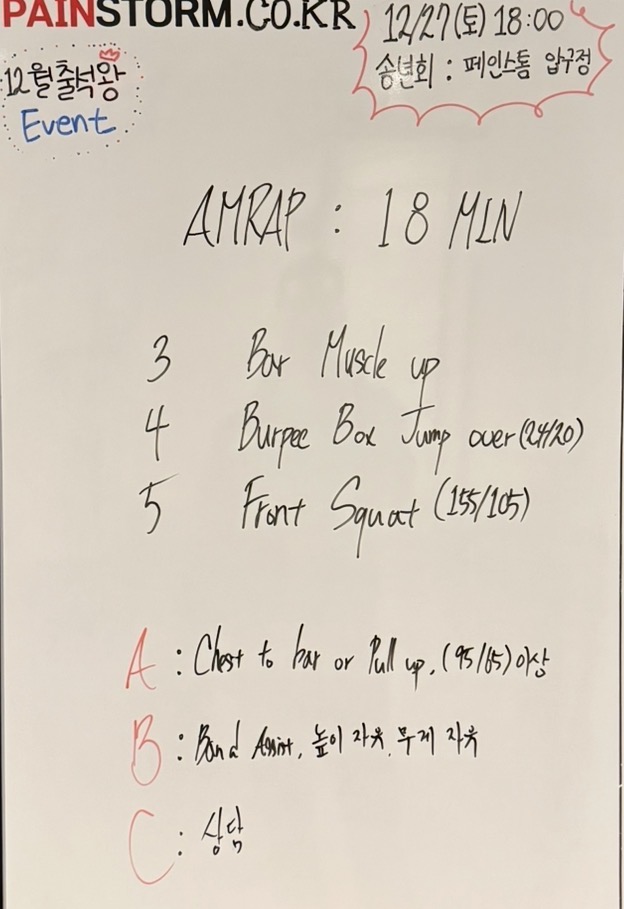 PAINSTORM.CO.KR
12/27(토) 18:00
송년회 : 페인스톰 압구정
12월 출석왕
Event
AMRAP : 18 MIN
3 Bar Muscle up
4 Burpee Box Jump over (24/20)
5 Front Squat (155/105)
A : Chest to bar or Pull up, (95/65) 이상
B : Band Assist, 높이 자유, 무게 자유
C : 상담